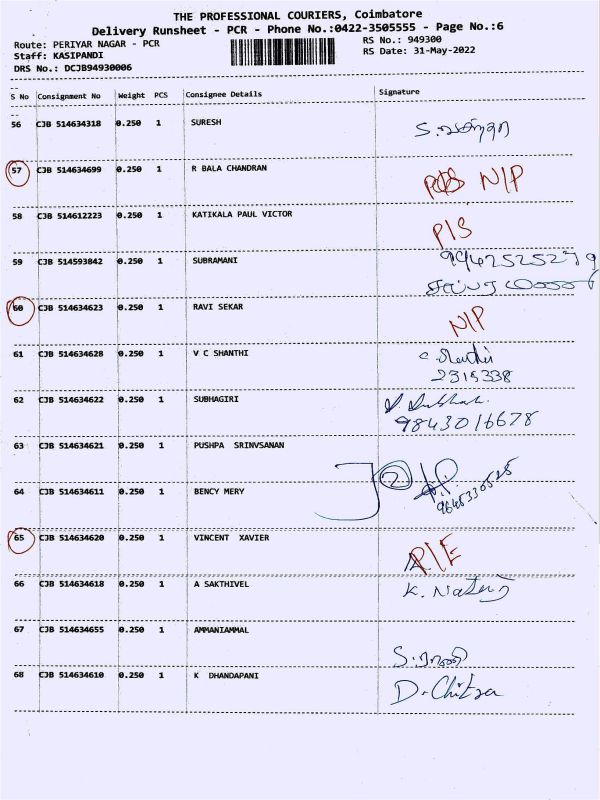 THE PROFESSIONAL COURIERS, Coimbatore
Delivery Runsheet - PCR - Phone No.:0422-3505555 - Page No.:6
Route: PERIYAR NAGAR - PCR RS No.: 949300
Staff: KASIPANDI RS Date: 31-May-2022
DRS No.: DCJB94930006
S No Consignment No Weight PCS Consignee Details Signature
56 CJB 514634318 0.250 1 SURESH
57 CJB 514634699 0.250 1 R BALA CHANDRAN N/P
58 CJB 514612223 0.250 1 KATIKALA PAUL VICTOR P/S
59 CJB 514593842 0.250 1 SUBRAMANI
60 CJB 514634623 0.250 1 RAVI SEKAR N/P
61 CJB 514634628 0.250 1 V C SHANTHI
2315338
62 CJB 514634622 0.250 1 SUBHAGIRI
9843016678
63 CJB 514634621 0.250 1 PUSHPA SRINVSANAN
64 CJB 514634611 0.250 1 BENCY MERY 2
65 CJB 514634620 0.250 1 VINCENT XAVIER P/E
66 CJB 514634618 0.250 1 A SAKTHIVEL K.
67 CJB 514634655 0.250 1 AMMANIAMMAL
68 CJB 514634610 0.250 1 K DHANDAPANI D. Chitra